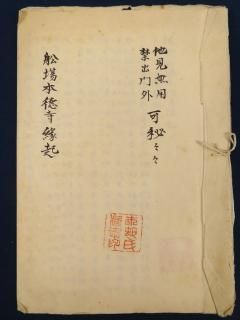 他見無用
禁出門外
可秘々々
舩場本徳寺縁起